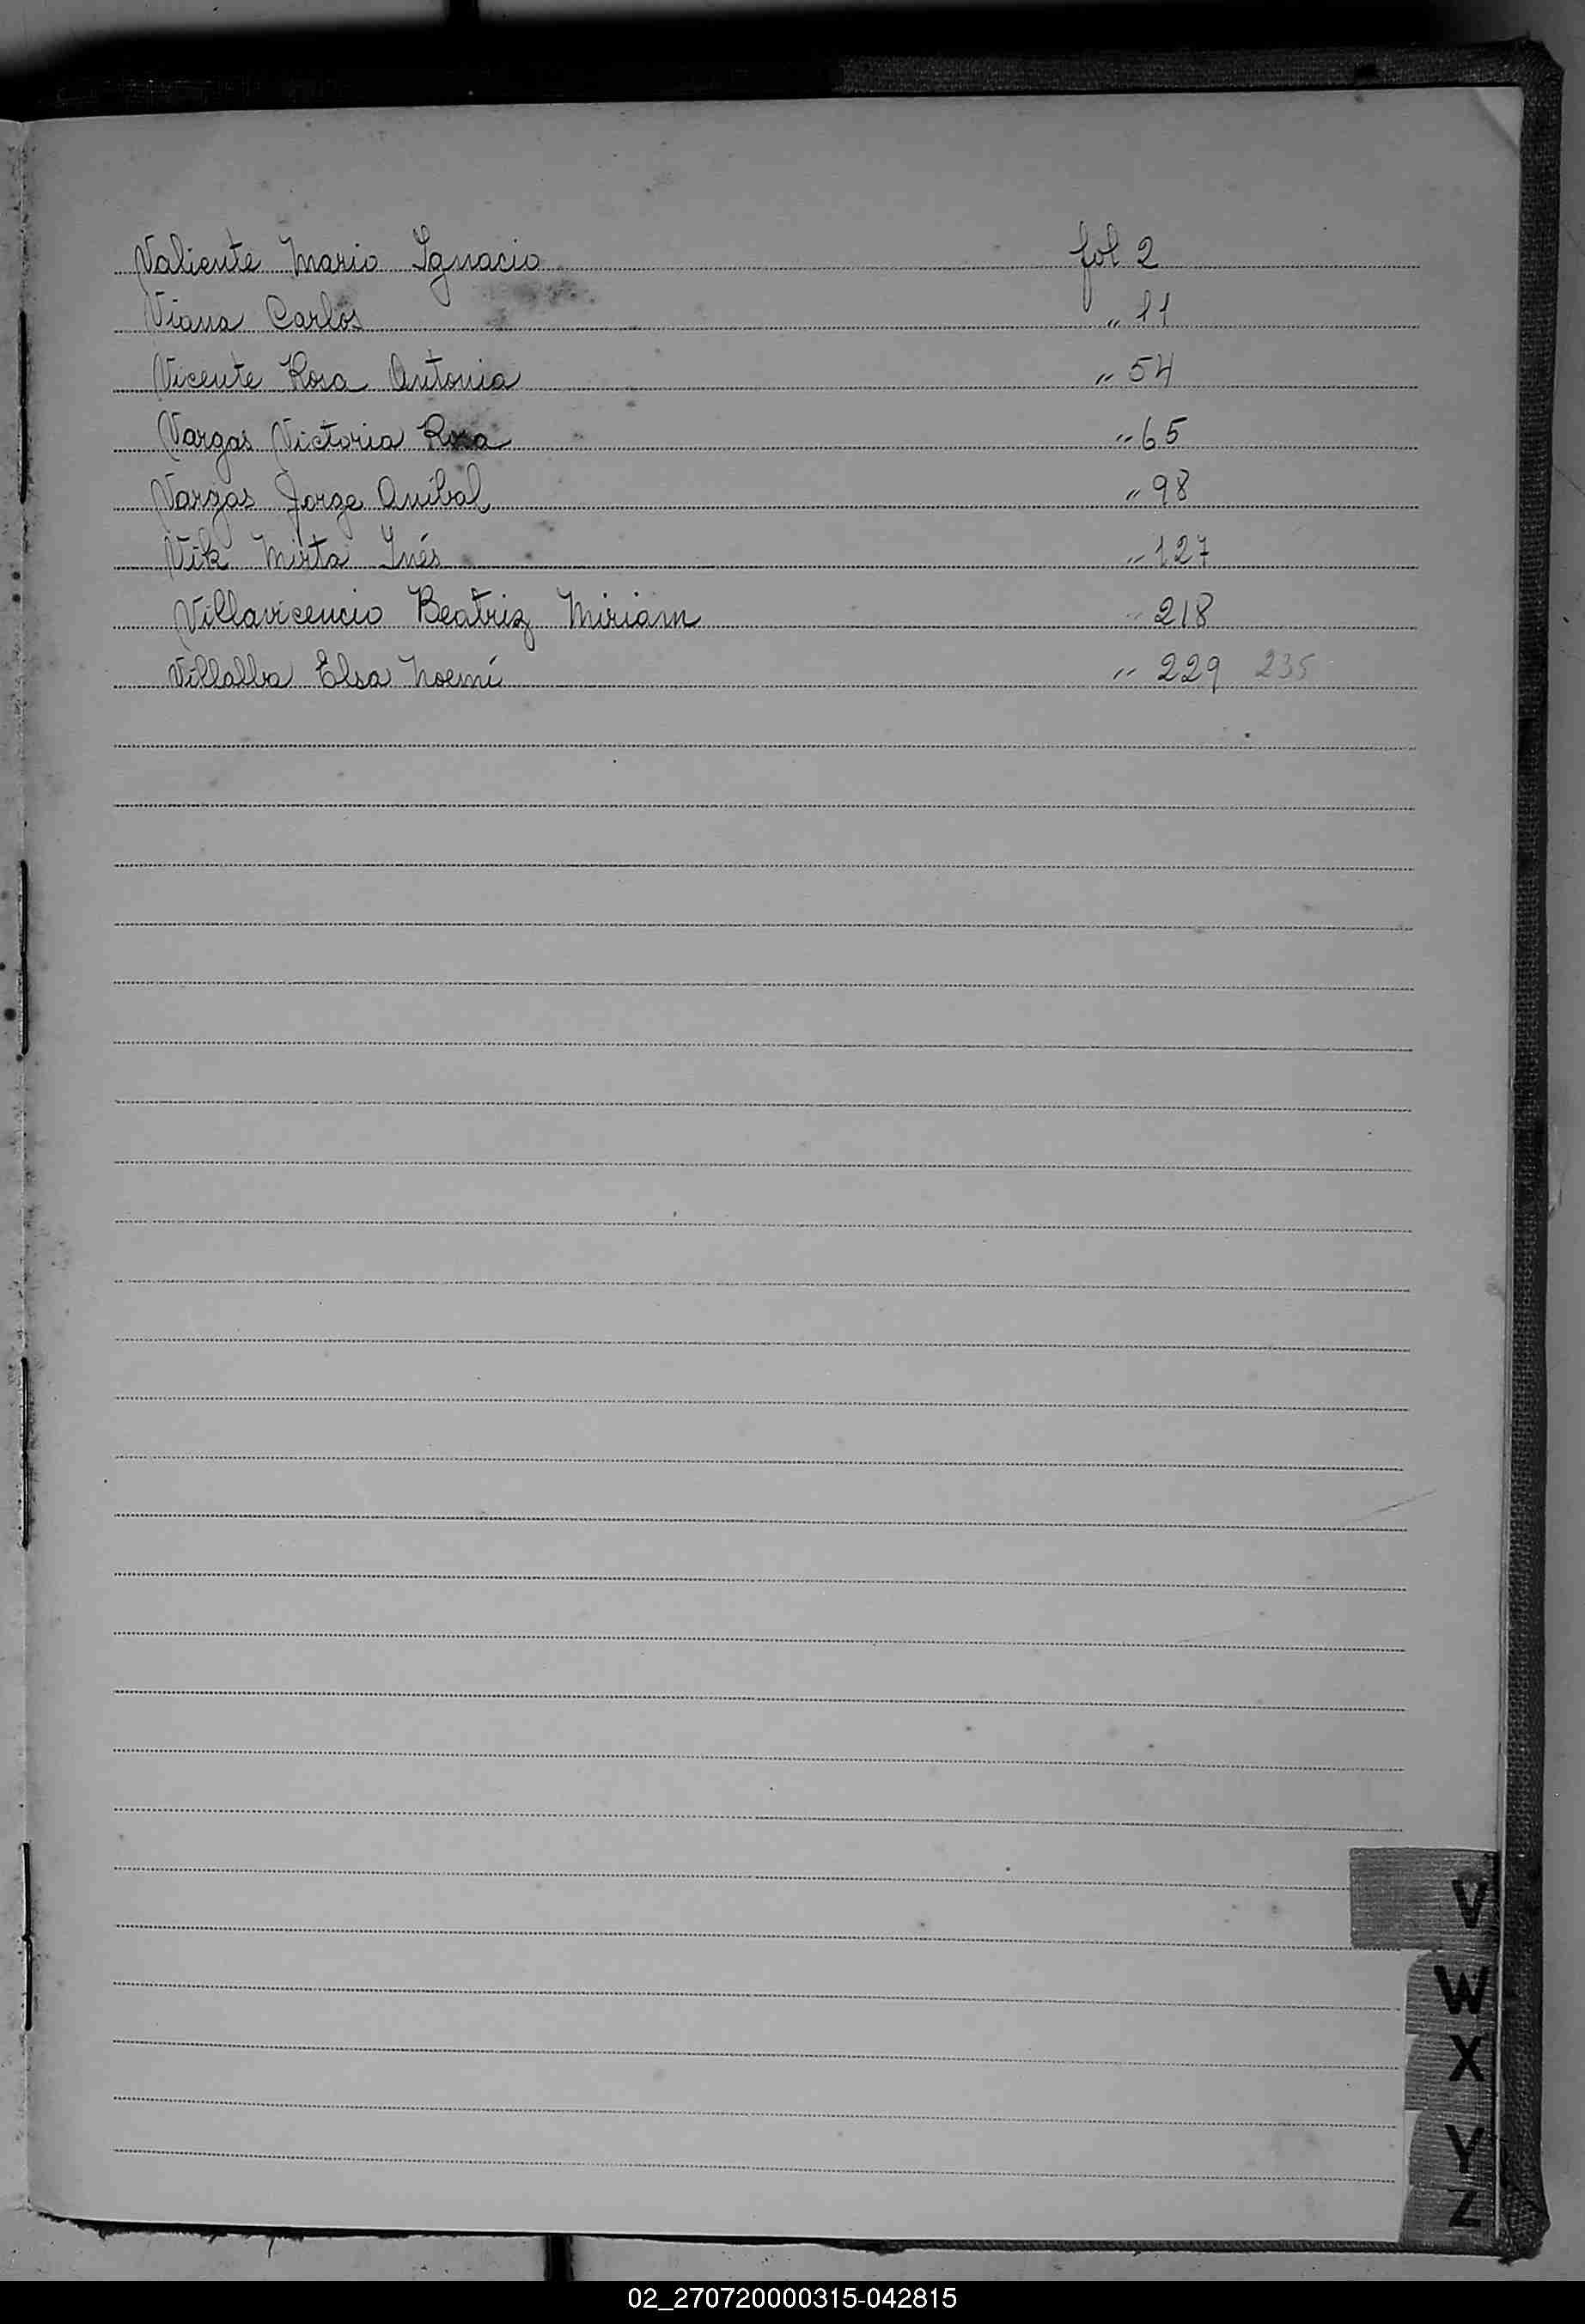 Valiente Mario Ignacio fol 2
Viana Carlos " 11
Vicente Rosa Antonia " 54
Vargas Victoria Rosa " 65
Vargas Jorge Aníbal " 98
Vik Mirta Inés " 127
Villavicencio Beatriz Miriam " 218
Villalba Elsa Noemí " 229 235
V
W
X
Y
Z
02_270720000315-042815